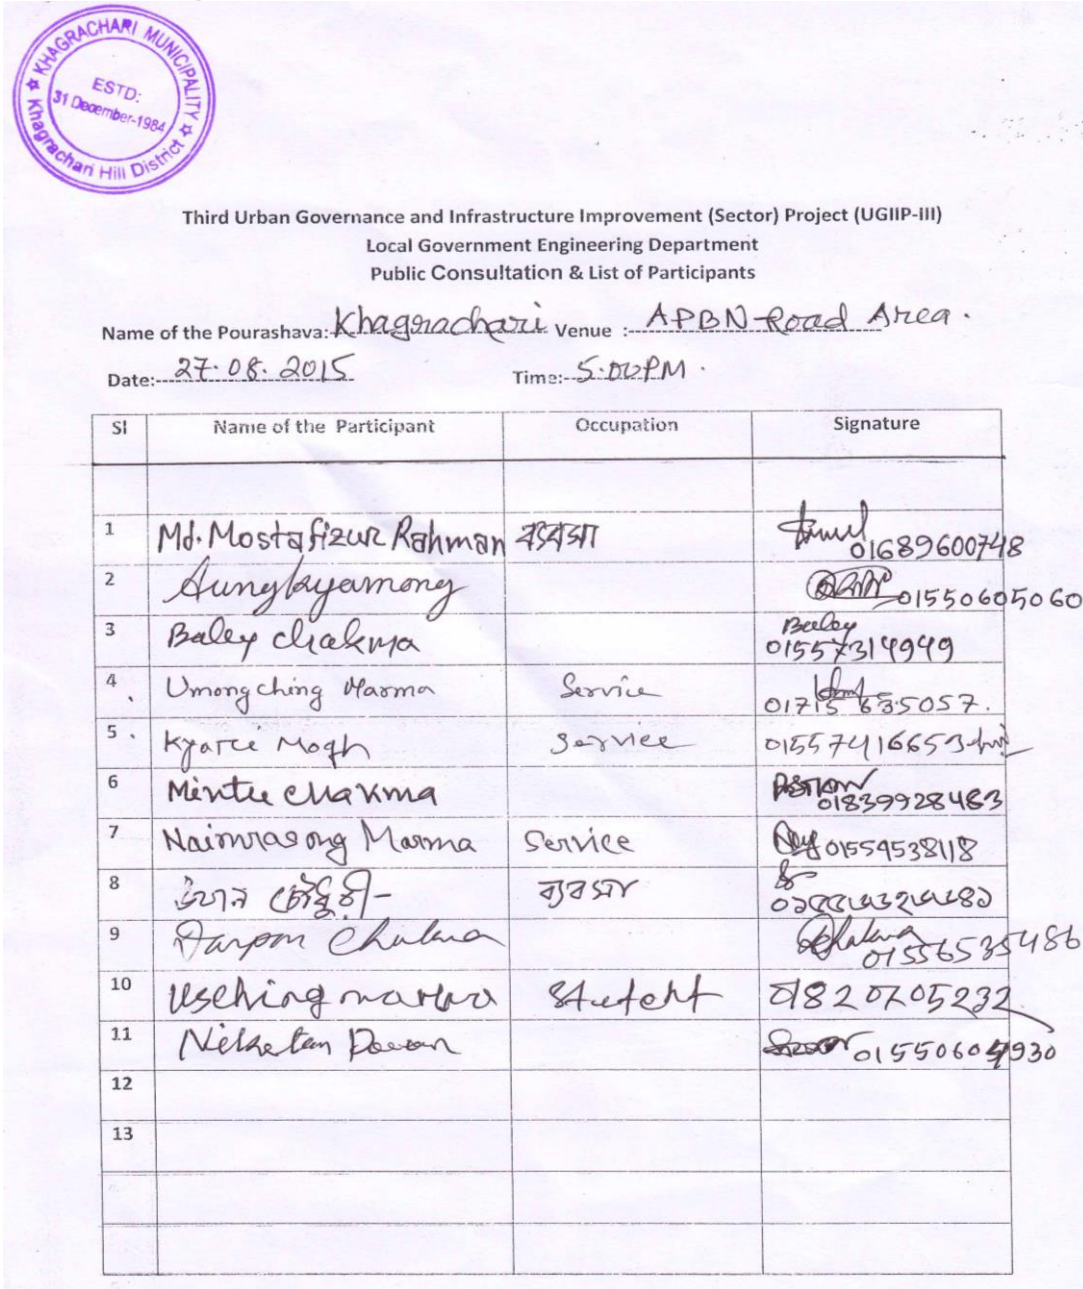 KHAGRACHARI MUNICIPALITY
ESTD:
31 December-1984
Khagrachari Hill District
Third Urban Governance and Infrastructure Improvement (Sector) Project (UGIIP-III)
Local Government Engineering Department
Public Consultation & List of Participants
Name of the Pourashava: Khagrachari Venue : APBN Road Area.
Date: 27.08.2015 Time: 5.00PM.
Sl Name of the Participant Occupation Signature
1 Md. Mostafizur Rahman ব্যবসা 01689600748
2 Aungkyamong 01550605060
3 Baley Chakma Baley 01557314949
4 Umong ching Marma Service 01715 635057.
5 Mogh Service 01557416653
6 Mintu Chakma 01839928483
7 Naimrasong Marma Service 01554538118
8 চৌধুরী ব্যবসা
9 Darpon Chakma 01556535486
10 Usching marma 01820705232
11 Niketan Dewan 01550604930
12
13